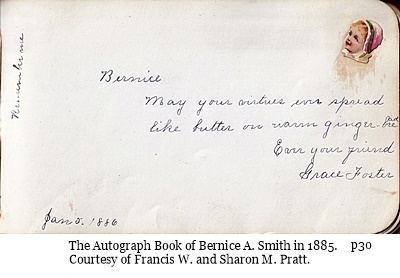 Remember me
Bernice
May your virtues ever spread
like butter on warm ginger-bread
Ever your friend
Grace Foster
Jan 5. 1886
The Autograph Book of Bernice A. Smith in 1885. p30
Courtesy of Francis W. and Sharon M. Pratt.